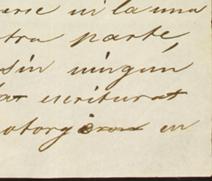 erse ni la una
tra parte,
sin ningun
las escrituras
otorgaron en